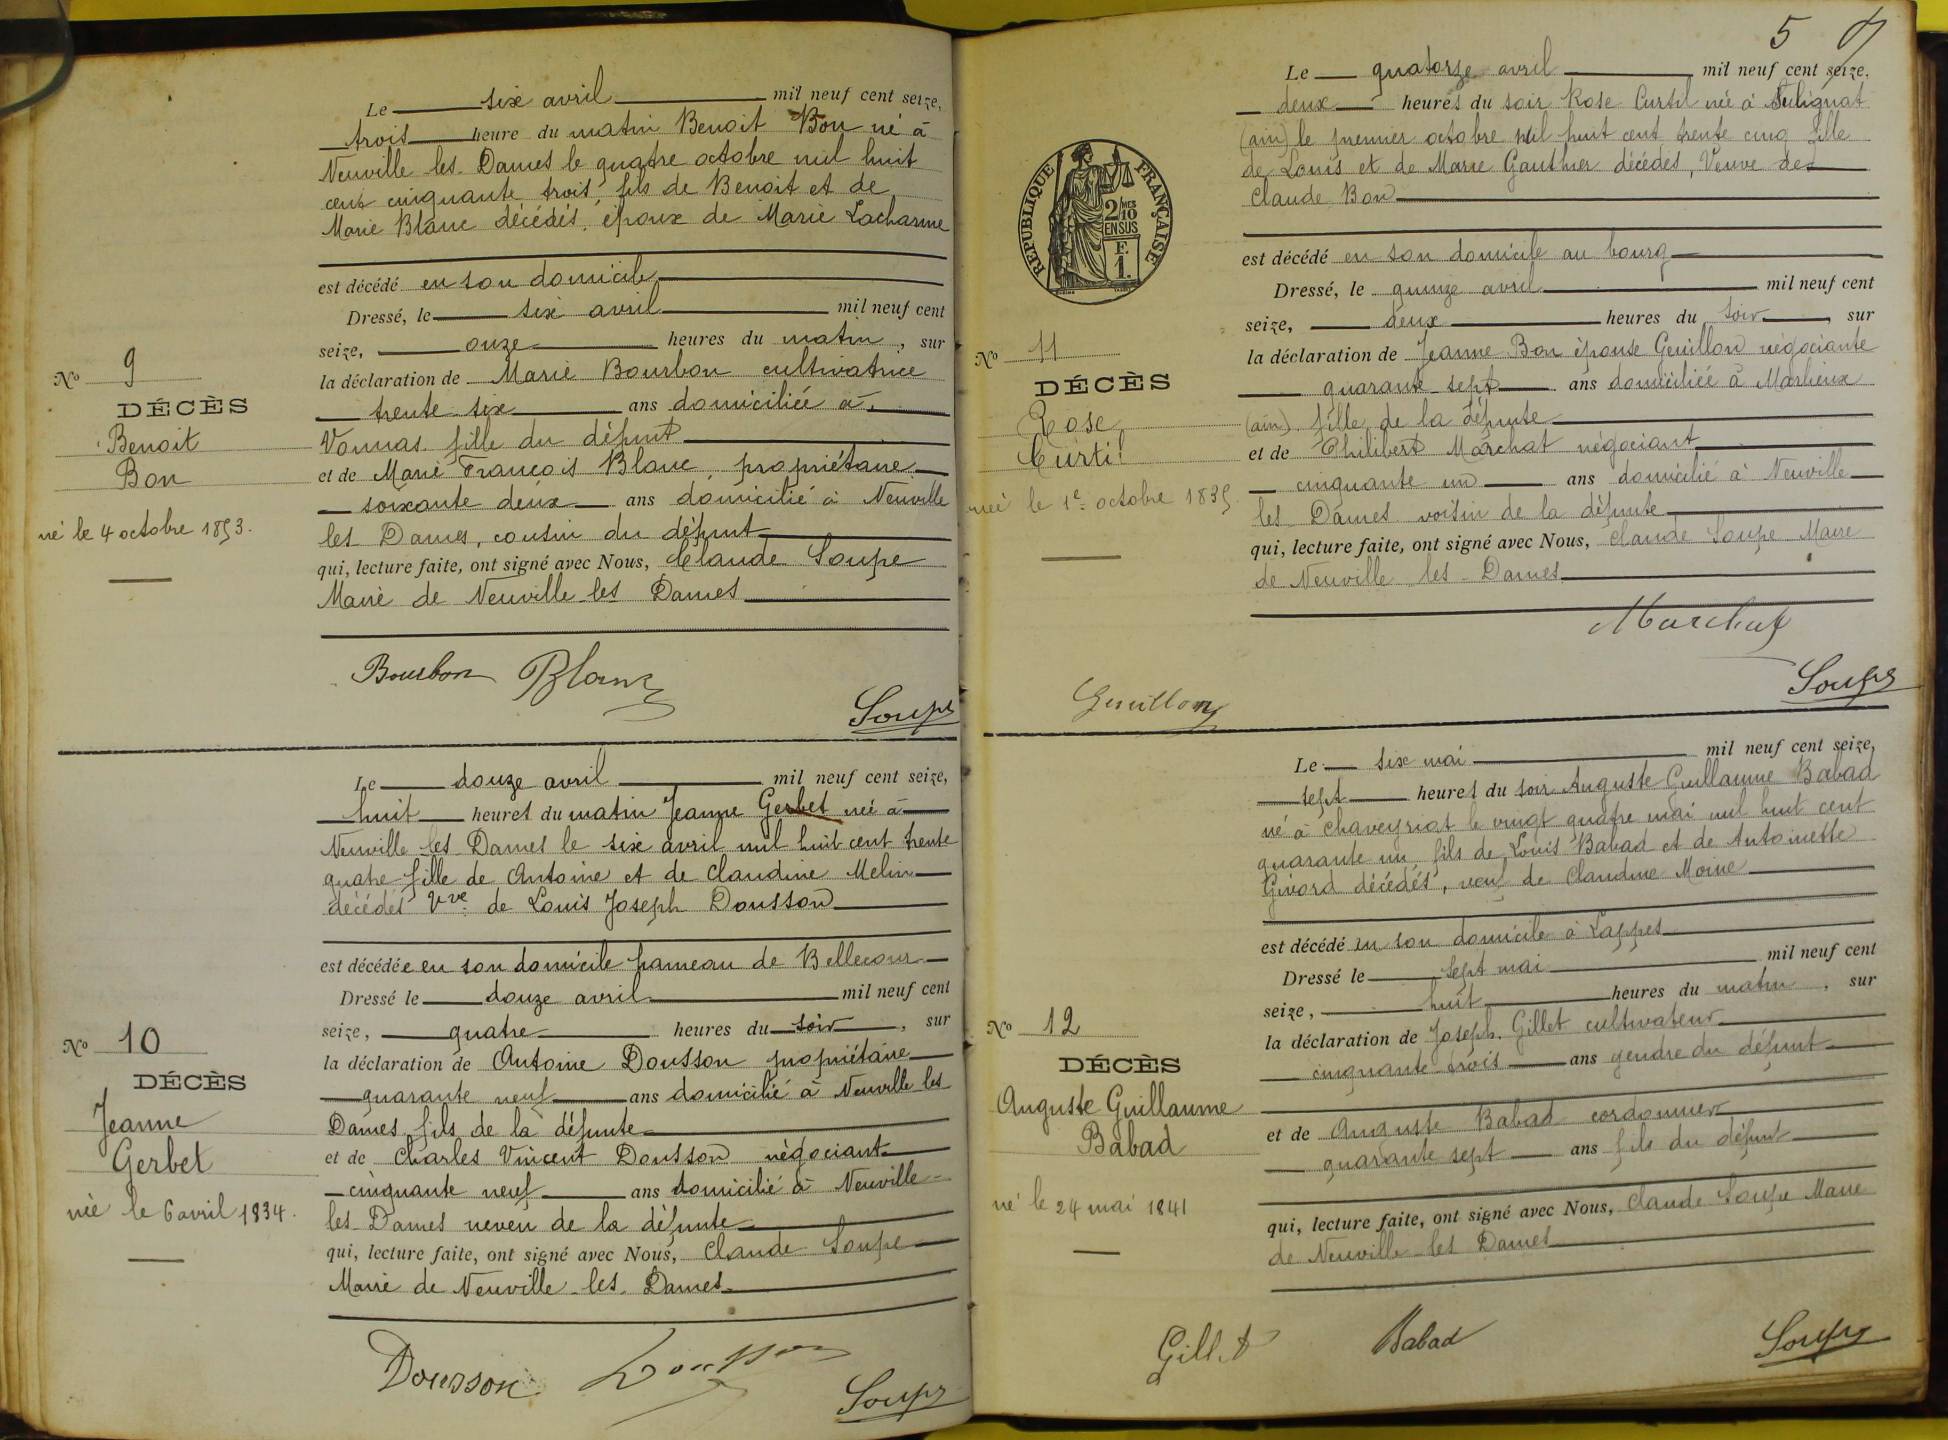 Le six avril mil neuf cent seize,
trois heure du matin Benoit Bon né à
Neuville les Dames le quatre octobre mil huit
cent cinquante trois fils de Benoit et de
Marie Blanc décédés, époux de Marie Lacharme
est décédé en son domicile
Dressé, le six avril mil neuf cent
seize, onze heures du matin, sur
la déclaration de Marie Bourbon cultivatrice
trente six ans domiciliée à
Vonnas fille du défunt
et de Marie François Blanc propriétaire
soixante deux ans domicilié à Neuville
les Dames, cousin du défunt
qui, lecture faite, ont signé avec Nous, Claude Soupe
Maire de Neuville les Dames
No 9
DÉCÈS
Benoit
Bon
né le 4 octobre 1853.
Bourbon Blanc
Soupe
Le douze avril mil neuf cent seize,
huit heures du matin Jeanne Gerbet née à
Neuville les Dames le six avril mil huit cent trente
quatre fille de Antoine et de Claudine Melin
décédés Vve de Louis Joseph Dousson
est décédée en son domicile hameau de Bellecour
Dressé le douze avril mil neuf cent
seize, quatre heures du soir, sur
la déclaration de Antoine Dousson propriétaire
quarante neuf ans domicilié à Neuville les
Dames fils de la défunte
et de Charles Vincent Dousson négociant
cinquante neuf ans domicilié à Neuville
les Dames neveu de la défunte
qui, lecture faite, ont signé avec Nous, Claude Soupe
Maire de Neuville les Dames
No 10
DÉCÈS
Jeanne
Gerbet
née le 6 avril 1834.
Dousson Dousson
Soupe
5
Le quatorze avril mil neuf cent seize,
deux heures du soir Rose Curtil née à Sulignat
(ain) le premier octobre mil huit cent trente cinq fille
de Louis et de Marie Gauthier décédés, Veuve de
Claude Bon
est décédé en son domicile au bourg
Dressé, le quinze avril mil neuf cent
seize, deux heures du soir, sur
la déclaration de Jeanne Bon épouse Guillon négociante
quarante sept ans domiciliée à Marlieux
(ain) fille de la défunte
et de Philibert Marchat négociant
cinquante un ans domicilié à Neuville
les Dames voisin de la défunte
qui, lecture faite, ont signé avec Nous, Claude Soupe Maire
de Neuville les Dames
REPUBLIQUE FRANÇAISE
2/MES
10
EN SUS
F.
1.
No 11
DÉCÈS
Rose
Curtil
née le 1e octobre 1835.
Marchat
Guillon
Soupe
Le six mai mil neuf cent seize,
sept heures du soir Auguste Guillaume Babad
né à Chaveyriat le vingt quatre mai mil huit cent
quarante un, fils de Louis Babad et de Antoinette
Givord décédés, veuf de Claudine Moine
est décédé en son domicile à Lappes
Dressé le sept mai mil neuf cent
seize, huit heures du matin, sur
la déclaration de Joseph Gillet cultivateur
cinquante trois ans gendre du défunt
et de Auguste Babad cordonnier
quarante sept ans fils du défunt
qui, lecture faite, ont signé avec Nous, Claude Soupe Maire
de Neuville les Dames
No 12
DÉCÈS
Auguste Guillaume
Babad
né le 24 mai 1841
Gillet Babad Soupe